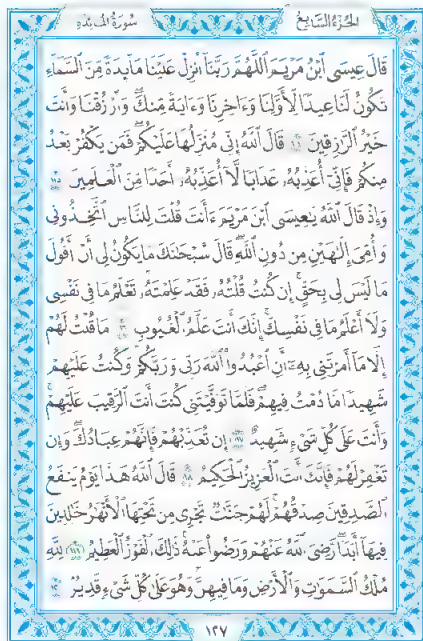 الجزء السابع
سورة المائدة
قَالَ عِيسَى ٱبْنُ مَرْيَمَ ٱللَّهُمَّ رَبَّنَآ أَنزِلْ عَلَيْنَا مَآئِدَةً مِّنَ ٱلسَّمَآءِ
تَكُونُ لَنَا عِيدًا لِّأَوَّلِنَا وَءَاخِرِنَا وَءَايَةً مِّنكَ وَٱرْزُقْنَا وَأَنتَ
خَيْرُ ٱلرَّٰزِقِينَ ١١٤ قَالَ ٱللَّهُ إِنِّى مُنَزِّلُهَا عَلَيْكُمْ فَمَن يَكْفُرْ بَعْدُ
مِنكُمْ فَإِنِّىٓ أُعَذِّبُهُۥ عَذَابًا لَّآ أُعَذِّبُهُۥٓ أَحَدًا مِّنَ ٱلْعَٰلَمِينَ ١١٥
وَإِذْ قَالَ ٱللَّهُ يَٰعِيسَى ٱبْنَ مَرْيَمَ ءَأَنتَ قُلْتَ لِلنَّاسِ ٱتَّخِذُونِى
وَأُمِّىَ إِلَٰهَيْنِ مِن دُونِ ٱللَّهِ قَالَ سُبْحَٰنَكَ مَا يَكُونُ لِىٓ أَنْ أَقُولَ
مَا لَيْسَ لِى بِحَقٍّ إِن كُنتُ قُلْتُهُۥ فَقَدْ عَلِمْتَهُۥ تَعْلَمُ مَا فِى نَفْسِى
وَلَآ أَعْلَمُ مَا فِى نَفْسِكَ إِنَّكَ أَنتَ عَلَّٰمُ ٱلْغُيُوبِ ١١٦ مَا قُلْتُ لَهُمْ
إِلَّا مَآ أَمَرْتَنِى بِهِۦٓ أَنِ ٱعْبُدُوا۟ ٱللَّهَ رَبِّى وَرَبَّكُمْ وَكُنتُ عَلَيْهِمْ
شَهِيدًا مَّا دُمْتُ فِيهِمْ فَلَمَّا تَوَفَّيْتَنِى كُنتَ أَنتَ ٱلرَّقِيبَ عَلَيْهِمْ
وَأَنتَ عَلَىٰ كُلِّ شَىْءٍ شَهِيدٌ ١١٧ إِن تُعَذِّبْهُمْ فَإِنَّهُمْ عِبَادُكَ وَإِن
تَغْفِرْ لَهُمْ فَإِنَّكَ أَنتَ ٱلْعَزِيزُ ٱلْحَكِيمُ ١١٨ قَالَ ٱللَّهُ هَٰذَا يَوْمُ يَنفَعُ
ٱلصَّٰدِقِينَ صِدْقُهُمْ لَهُمْ جَنَّٰتٌ تَجْرِى مِن تَحْتِهَا ٱلْأَنْهَٰرُ خَٰلِدِينَ
فِيهَآ أَبَدًا رَّضِىَ ٱللَّهُ عَنْهُمْ وَرَضُوا۟ عَنْهُ ذَٰلِكَ ٱلْفَوْزُ ٱلْعَظِيمُ ١١٩ لِلَّهِ
مُلْكُ ٱلسَّمَٰوَٰتِ وَٱلْأَرْضِ وَمَا فِيهِنَّ وَهُوَ عَلَىٰ كُلِّ شَىْءٍ قَدِيرٌۢ ١٢٠
١٢٧